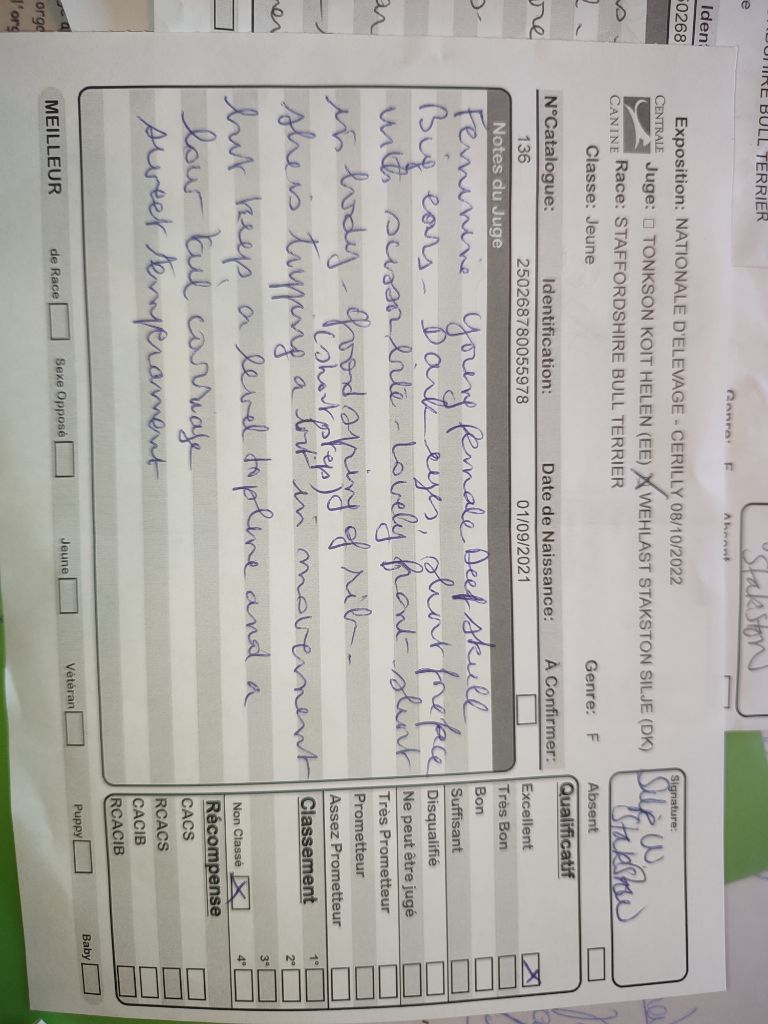 Exposition: NATIONALE D'ELEVAGE - CERILLY 08/10/2022
CENTRALE CANINE
Juge: □ TONKSON KOIT HELEN (EE) X WEHLAST STAKSTON SILJE (DK)
Race: STAFFORDSHIRE BULL TERRIER
Classe: Jeune
Genre: F
Absent
Signature:
Silje W
Stakston
N°Catalogue: Identification: Date de Naissance: À Confirmer:
136 250268780055978 01/09/2021
Notes du Juge
Feminine young female Deep skull
Big ears - Dark eyes, short foreface
with scissorbite - Lovely front - short
in body - good spring of rib -
(short steps)
she is tripping a bit in movement
but keeps a level topline and a
low tail carriage
sweet temperament
Qualificatif
Excellent X
Très Bon
Bon
Suffisant
Disqualifié
Ne peut être jugé
Très Prometteur
Prometteur
Assez Prometteur
Classement
1°
2°
3°
Non Classé X 4°
Récompense
CACS
RCACS
CACIB
RCACIB
MEILLEUR de Race Sexe Opposé Jeune Vétéran Puppy Baby
Stakston
BULL TERRIER
Genre: F Absent